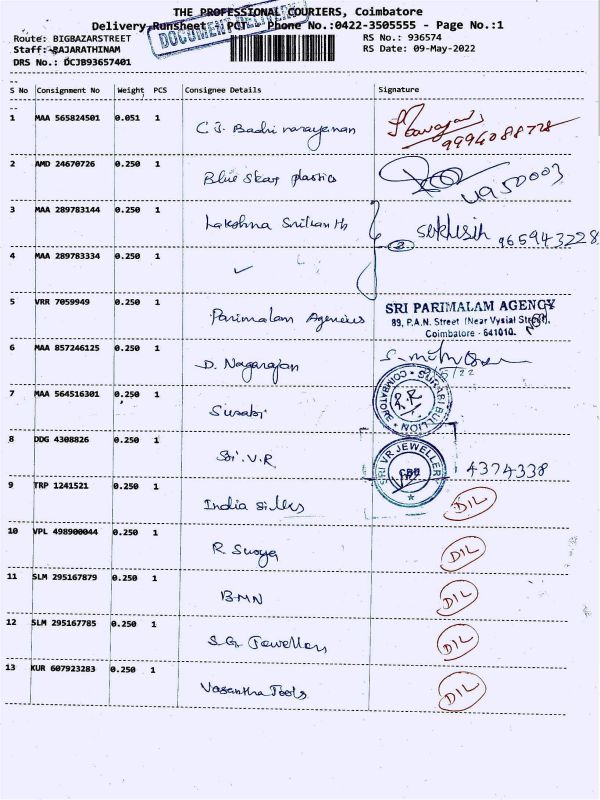 THE PROFESSIONAL COURIERS, Coimbatore
Delivery Runsheet - PCT - Phone No.:0422-3505555 - Page No.:1
DOCUMENT DELIVERY
Route: BIGBAZARSTREET RS No.: 936574
Staff: RAJARATHINAM RS Date: 09-May-2022
DRS No.: DCJB93657401
S No Consignment No Weight PCS Consignee Details Signature
1 MAA 565824501 0.051 1 C J. Badri narayanan
9994088728
2 AMD 24670726 0.250 1 Blue Star plastics
4950003
3 MAA 289783144 0.250 1 Lakshna Srikanth
2 965943228
4 MAA 289783334 0.250 1 ✓
5 VRR 7059949 0.250 1 Parimalam Agencies
SRI PARIMALAM AGENCY
89, P.A.N. Street (Near Vysial Street),
Coimbatore - 641010.
6 MAA 857246125 0.250 1 D. Nagarajan
7 MAA 564516301 0.250 1 Surabi
SURABI BULLION COIMBATORE
R.R
8 DDG 4308826 0.250 1 Sri. V.R
SRI VR JEWELLERY
CBE
4374338
9 TRP 1241521 0.250 1 India Silks DIL
10 VPL 498900044 0.250 1 R. Surya DIL
11 SLM 295167879 0.250 1 BMN DIL
12 SLM 295167785 0.250 1 S.G. Jewellers DIL
13 KUR 607923283 0.250 1 Vasantha Tools DIL